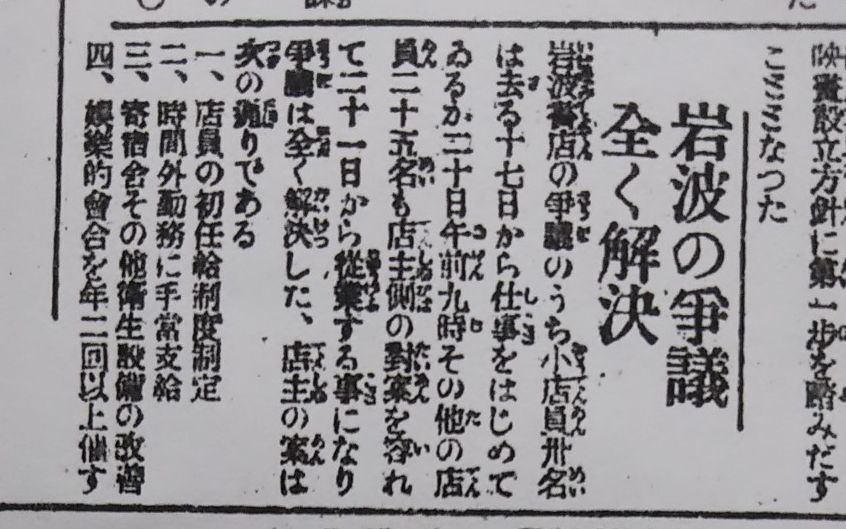 映畫設立方針に第一步を踏みだす
こととなつた
岩波の爭議
全く解決
岩波書店の爭議のうち小店員卅名
は去る十七日から仕事をはじめて
ゐるが二十日午前九時その他の店
員二十五名も店主側の對案を容れ
て二十一日から從業する事になり
爭議は全く解決した、店主の案は
次の通りである
一、店員の初任給制度制定
二、時間外勤務に手當支給
三、寄宿舍その他衞生設備の改善
四、娛樂的會合を年二回以上催す